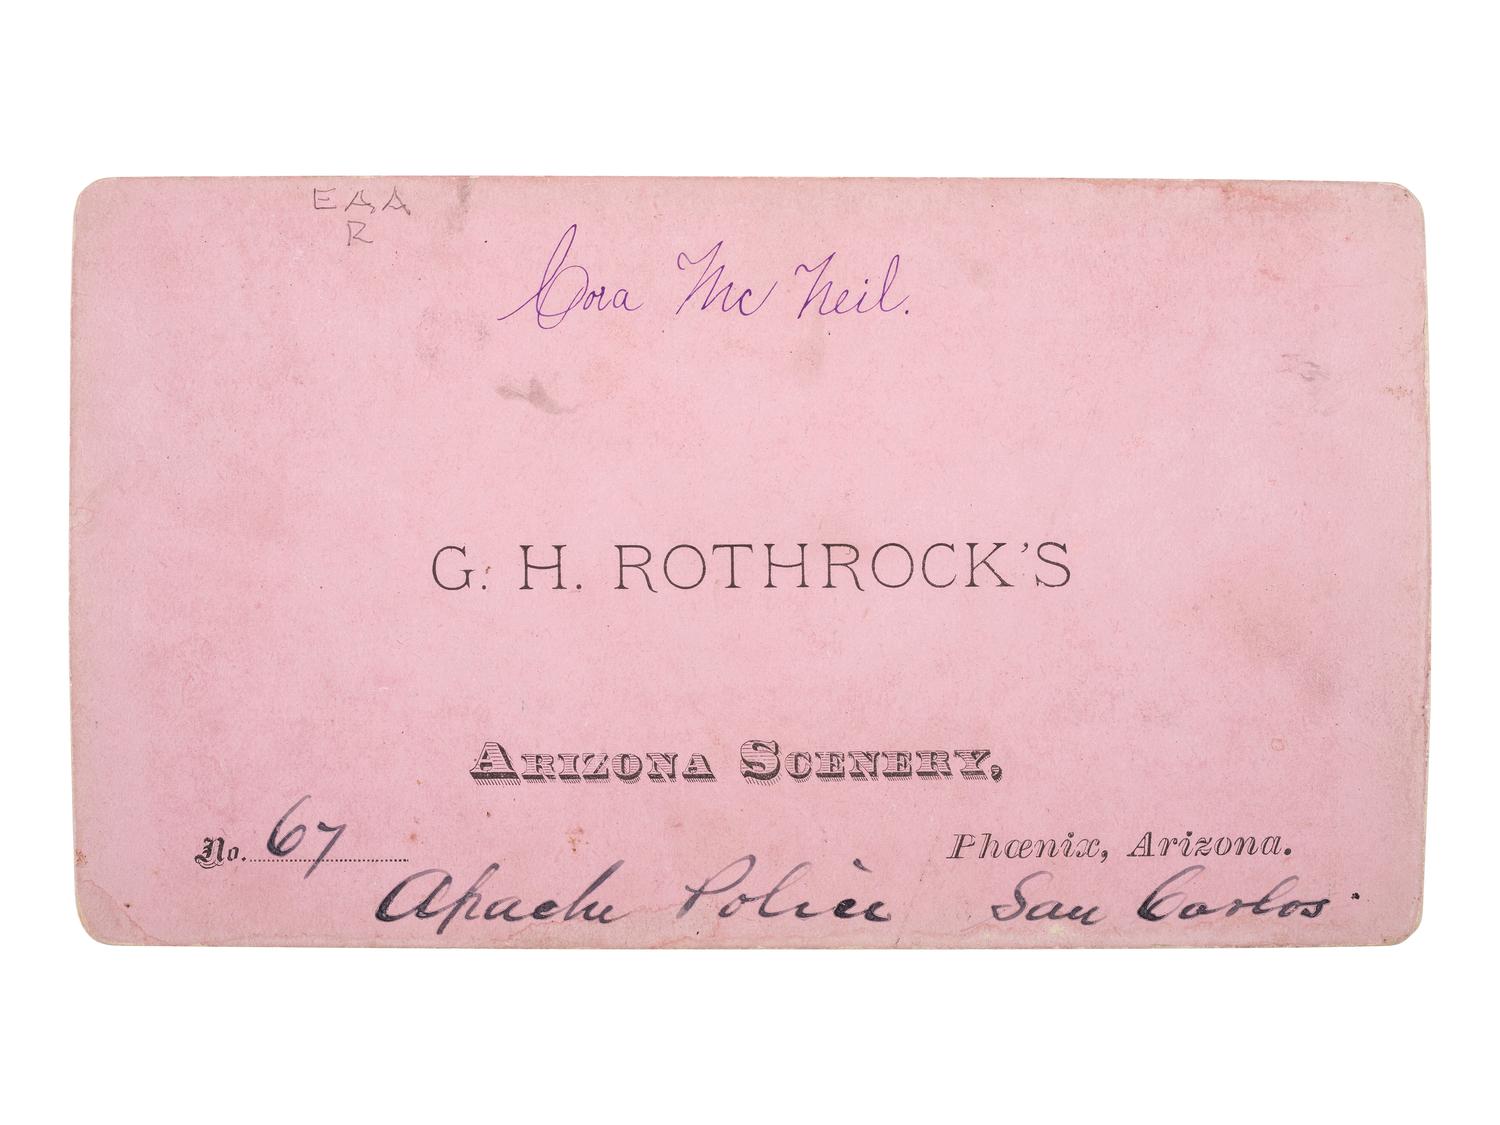 EAA
R
Cora Mc Neil.
G. H. ROTHROCK'S
ARIZONA SCENERY,
No. 67
Phœnix, Arizona.
Apache Police San Carlos.